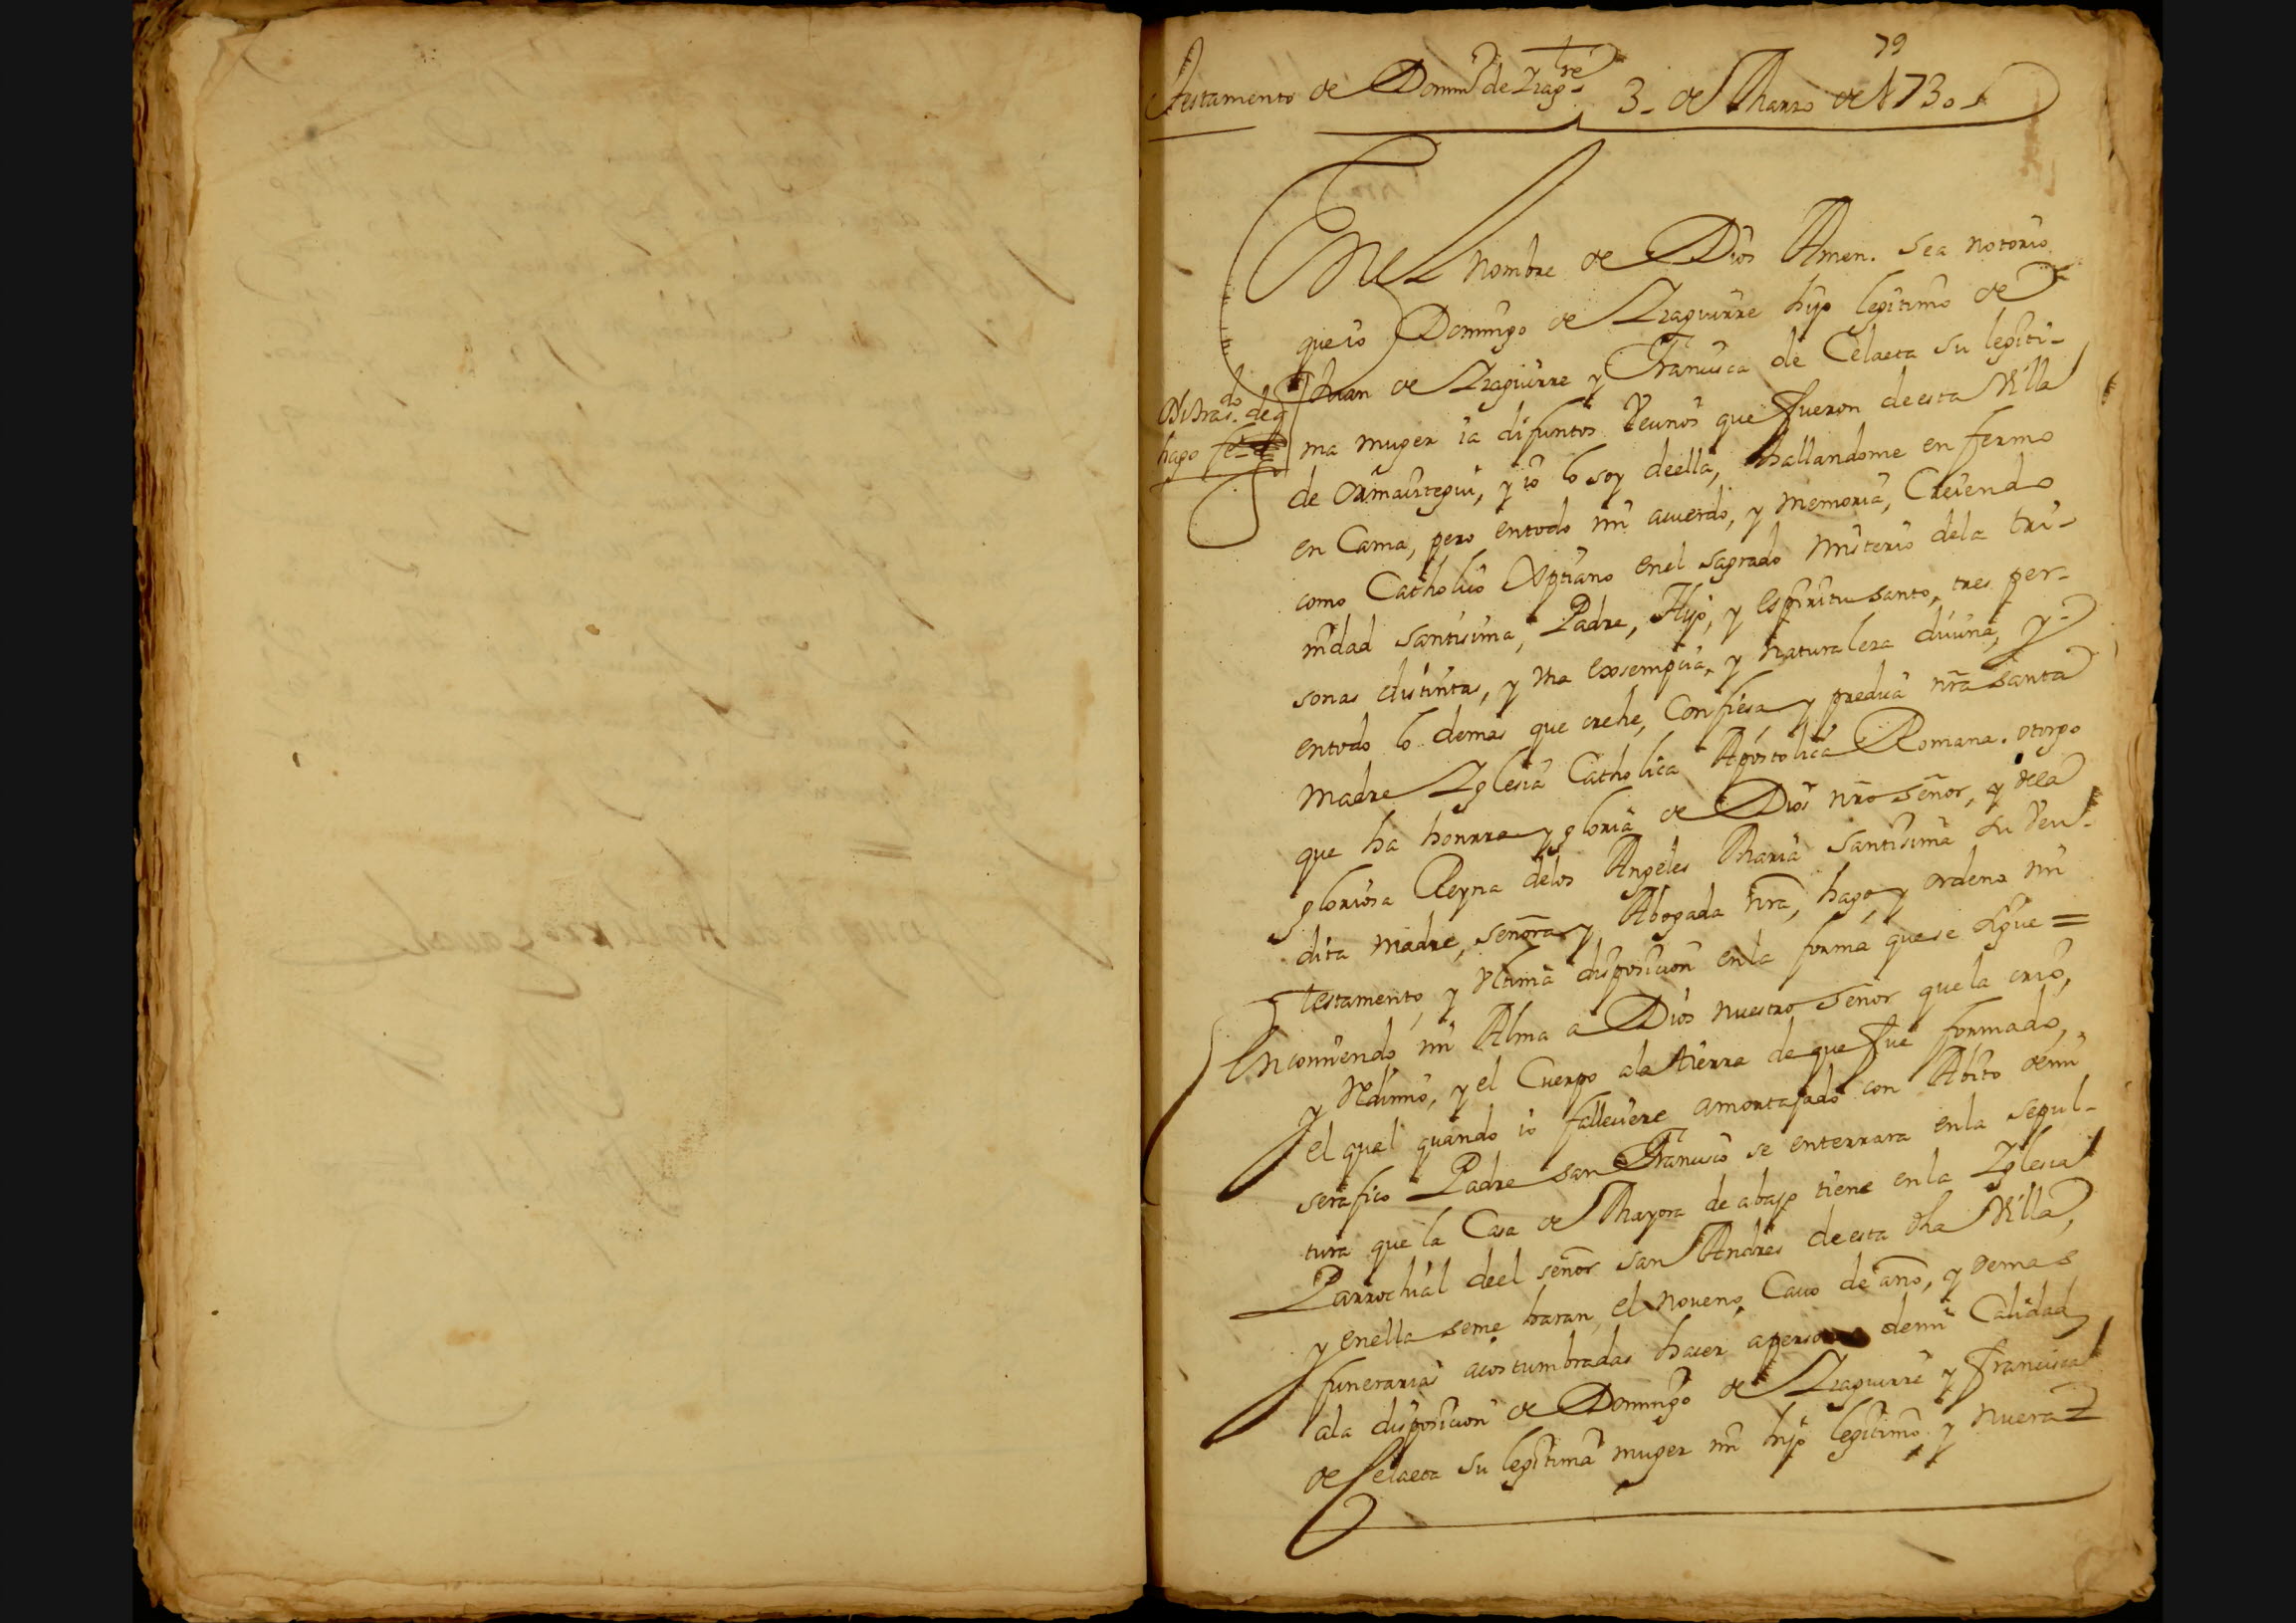 79
Testamento de Domingo de Yrag.re 3 de Marzo de 1730
En el nombre de Dios Amen. Sea notorio
que io Domingo de Yraguirre hijo legitimo de
Juan de Yraguirre y Francisca de Celaeta su legiti-
ma muger ia difuntos Vecinos que fueron de esta Villa
de Ormaiztegui, y io lo soy de ella, hallandome enfermo
en Cama, pero en todo mi acuerdo, y memoria, Creiendo
como Catholico Xptiano en el sagrado misterio de la tri-
nidad santisima, Padre, Hijo, y espiritu santo, tres per-
sonas distintas, y Vna exsempcia, y naturaleza diuina, y
en todo lo demas que crehe, Confiesa y predica nra santa
madre Yglesia Catholica Apostolica Romana. otorgo
que ha honrra y gloria de Dios nro señor, y de la
gloriosa Reyna de los Angeles Maria santisima su Ven-
dita madre, señora y Abogada nra, hago y ordeno mi
testamento, y Vltima disposicion en la forma que se sigue =
Encomiendo mi Alma a Dios nuestro señor que la crio,
y Redimio, y el Cuerpo a la tierra de que fue formado,
el qual quando io falleciere amortajado con Abito de mi
serafico Padre san Francisco se enterrara en la sepul-
tura que la Casa de Mayora de abajo tiene en la Yglesia
Parrochial de el señor san Andres de esta dha Villa,
y en ella se me haran, el noueno, Cauo de año, y demas
funerarias acostumbradas hacer a persona de mi Calidad
a la disposicion de Domingo de Yraguirre y francisca
de Celaeta su legitima muger mi hijo legitimo y nuera =
hago fe